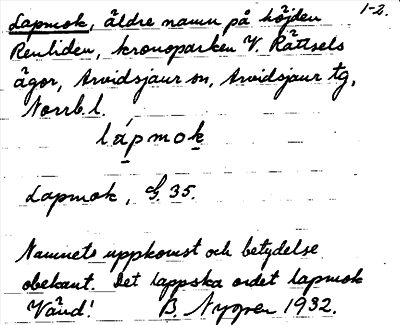 Lapmok, äldre namn på höjden 1-2.
Renliden, kronoparken V. Rättsels
ägor, Arvidsjaur sn, Arvidsjaur tg,
Norrb. l.
lápmok
Lapmok, G. 35.
Namnets uppkomst och betydelse
obekant. Det lappska ordet lapmok
Vänd! B. Nygren 1932.